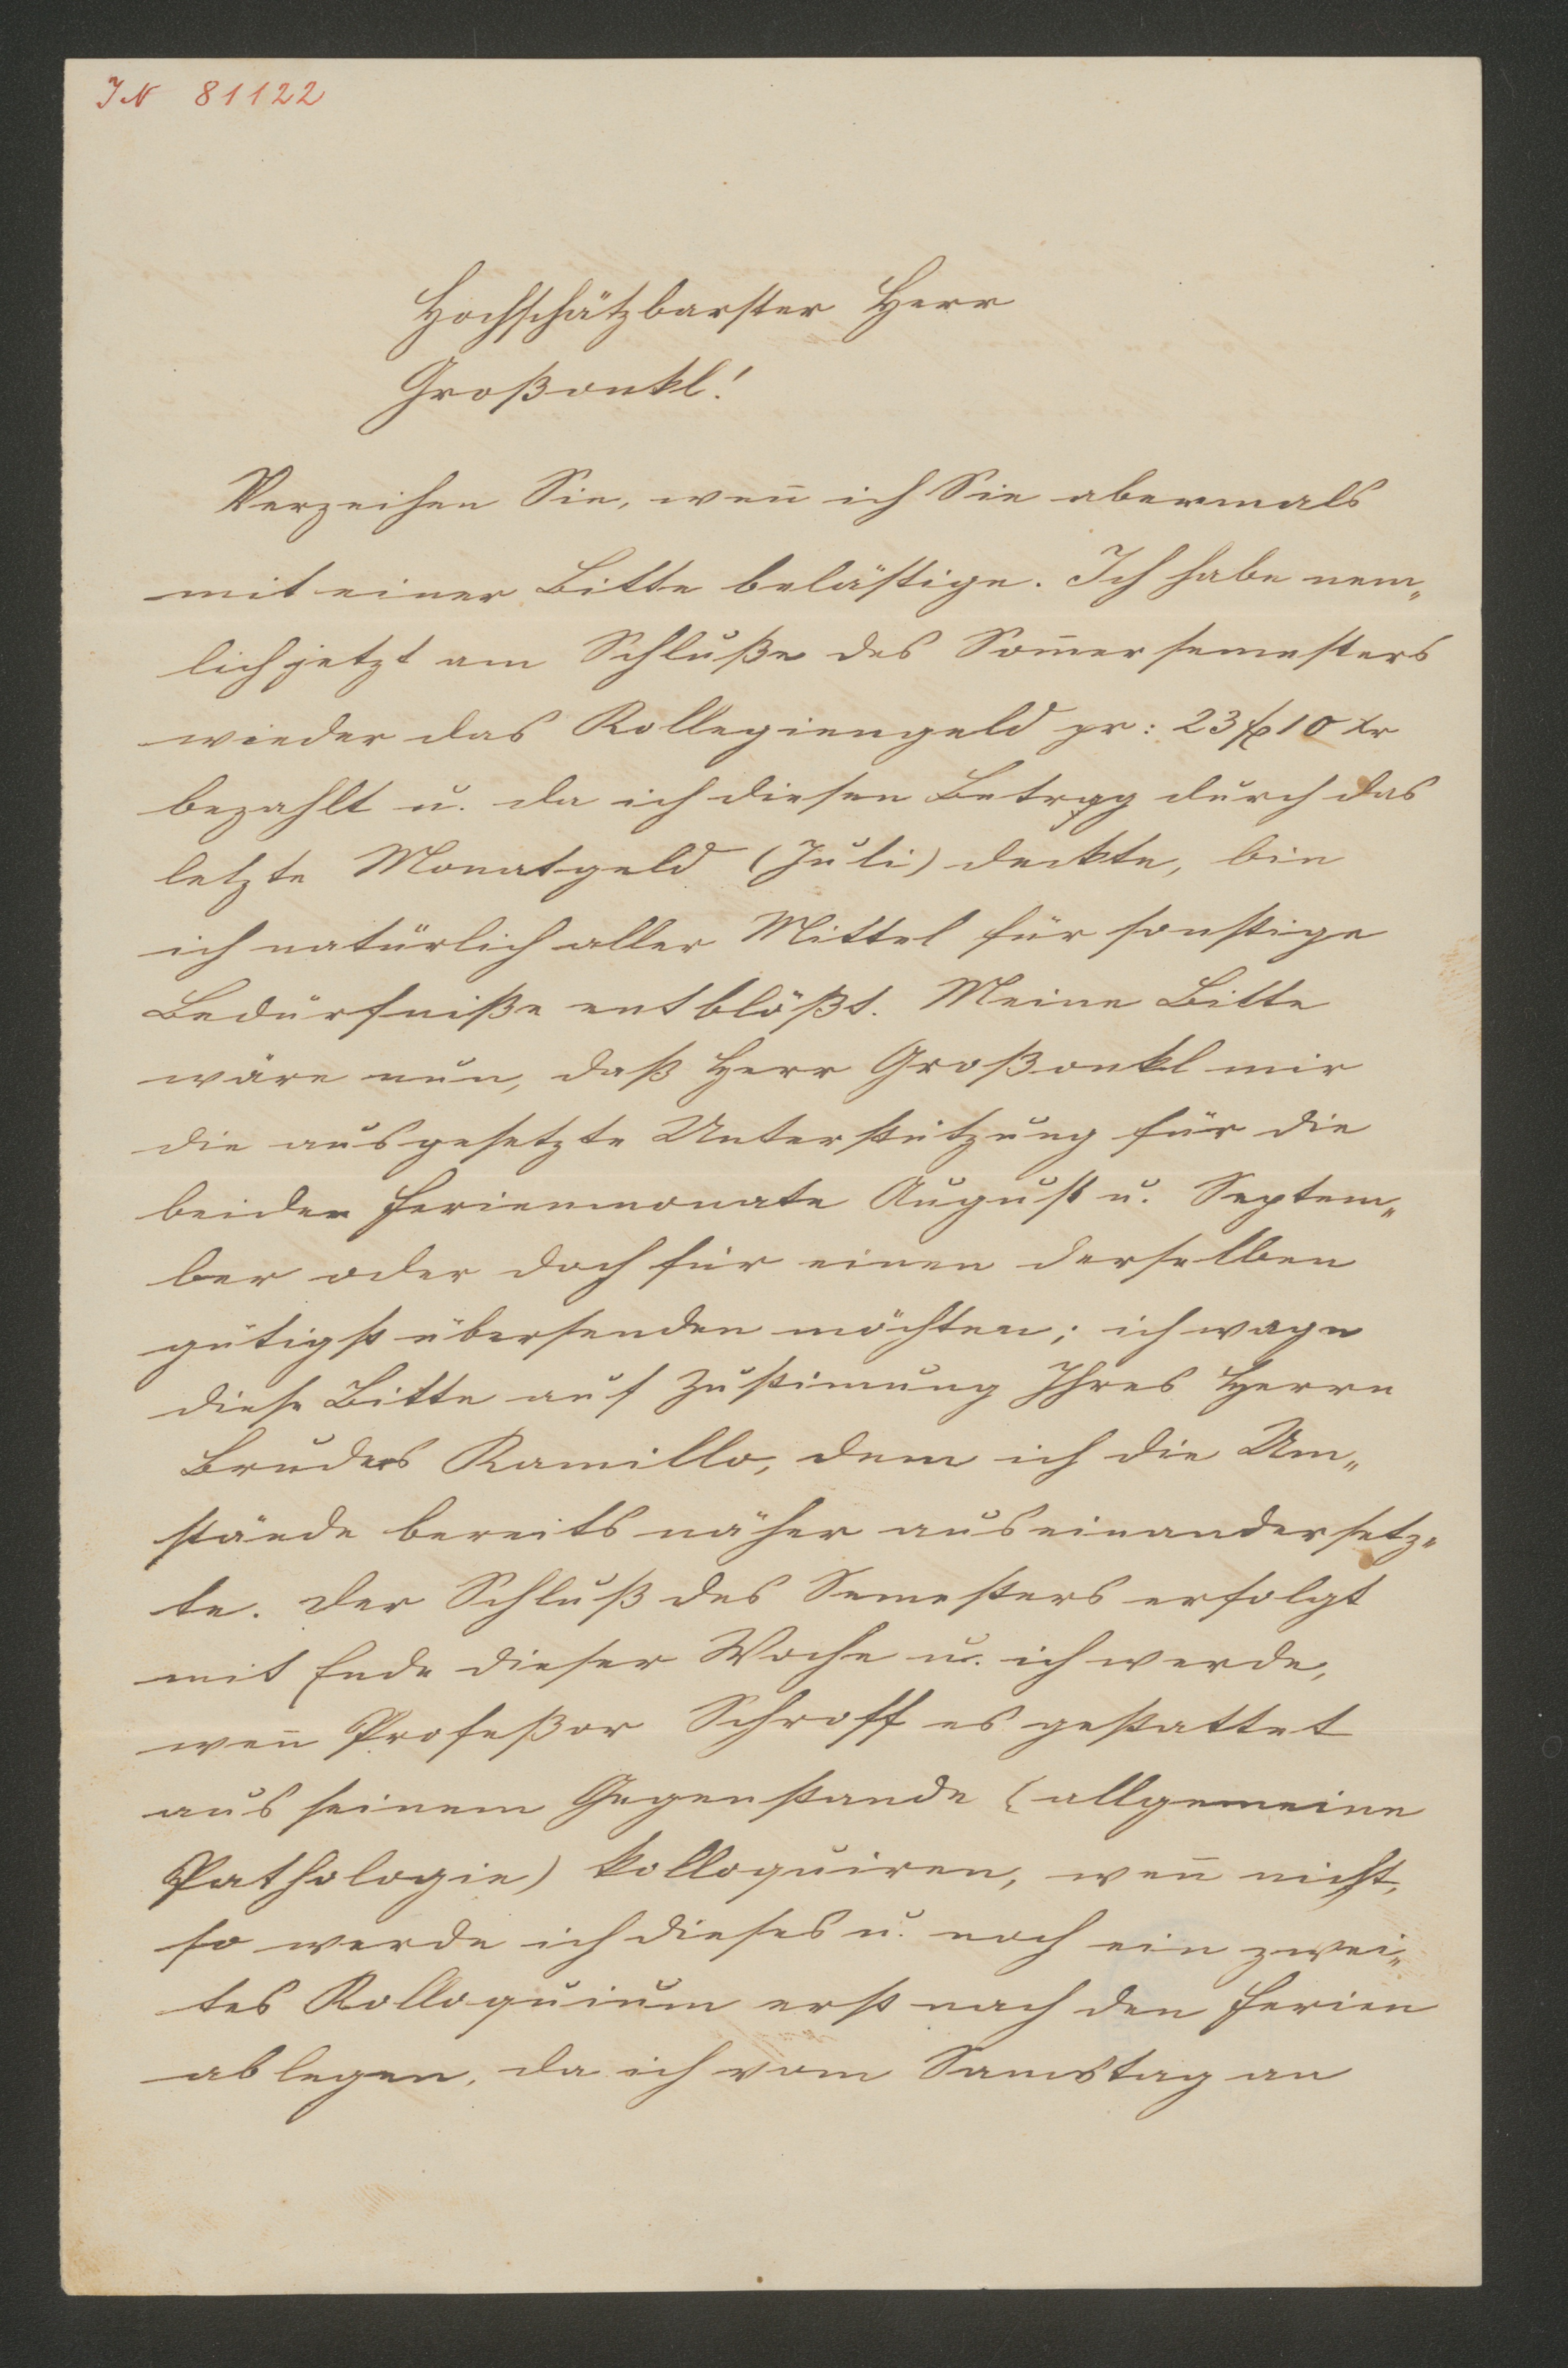 IN 81122
Hochschätzbarster Herr
Großonkl!
Verzeihen Sie, wen̅ ich Sie abermals
mit einer Bitte belästige. Ich habe nem„
lich jetzt am Schluße des Som̅ersemesters
wieder das Kollegiengeld pr: 23 fl 10 kr
bezahlt u. da ich diesen Betrag durch das
letzte Monatgeld (Juli) deckte, bin
ich natürlich aller Mittel für sonstige
Bedürfniße entblößt. Meine Bitte
wäre nun, daß Herr Großonkl mir
die ausgesetzte Unterstützung für die
beiden Ferienmonate August u. Septem„
ber oder doch für einen derselben
gütigst übersenden möchten; ich wage
diese Bitte auf Zustimung Ihres Herrn
Bruders Kamillo, dem ich die Um„
stände bereits näher auseinandersetz„
te. Der Schluß des Semesters erfolgt
mit Ende dieser Woche u. ich werde,
wen̅ Profeßor Schroff es gestattet
aus seinem Gegenstande (allgemeine
Pathologie) kolloquiren, wen̅ nicht,
so werde ich dieses u. noch ein zwei„
tes Kolloquium erst nach den Ferien
ablegen, da ich vom Samstag an